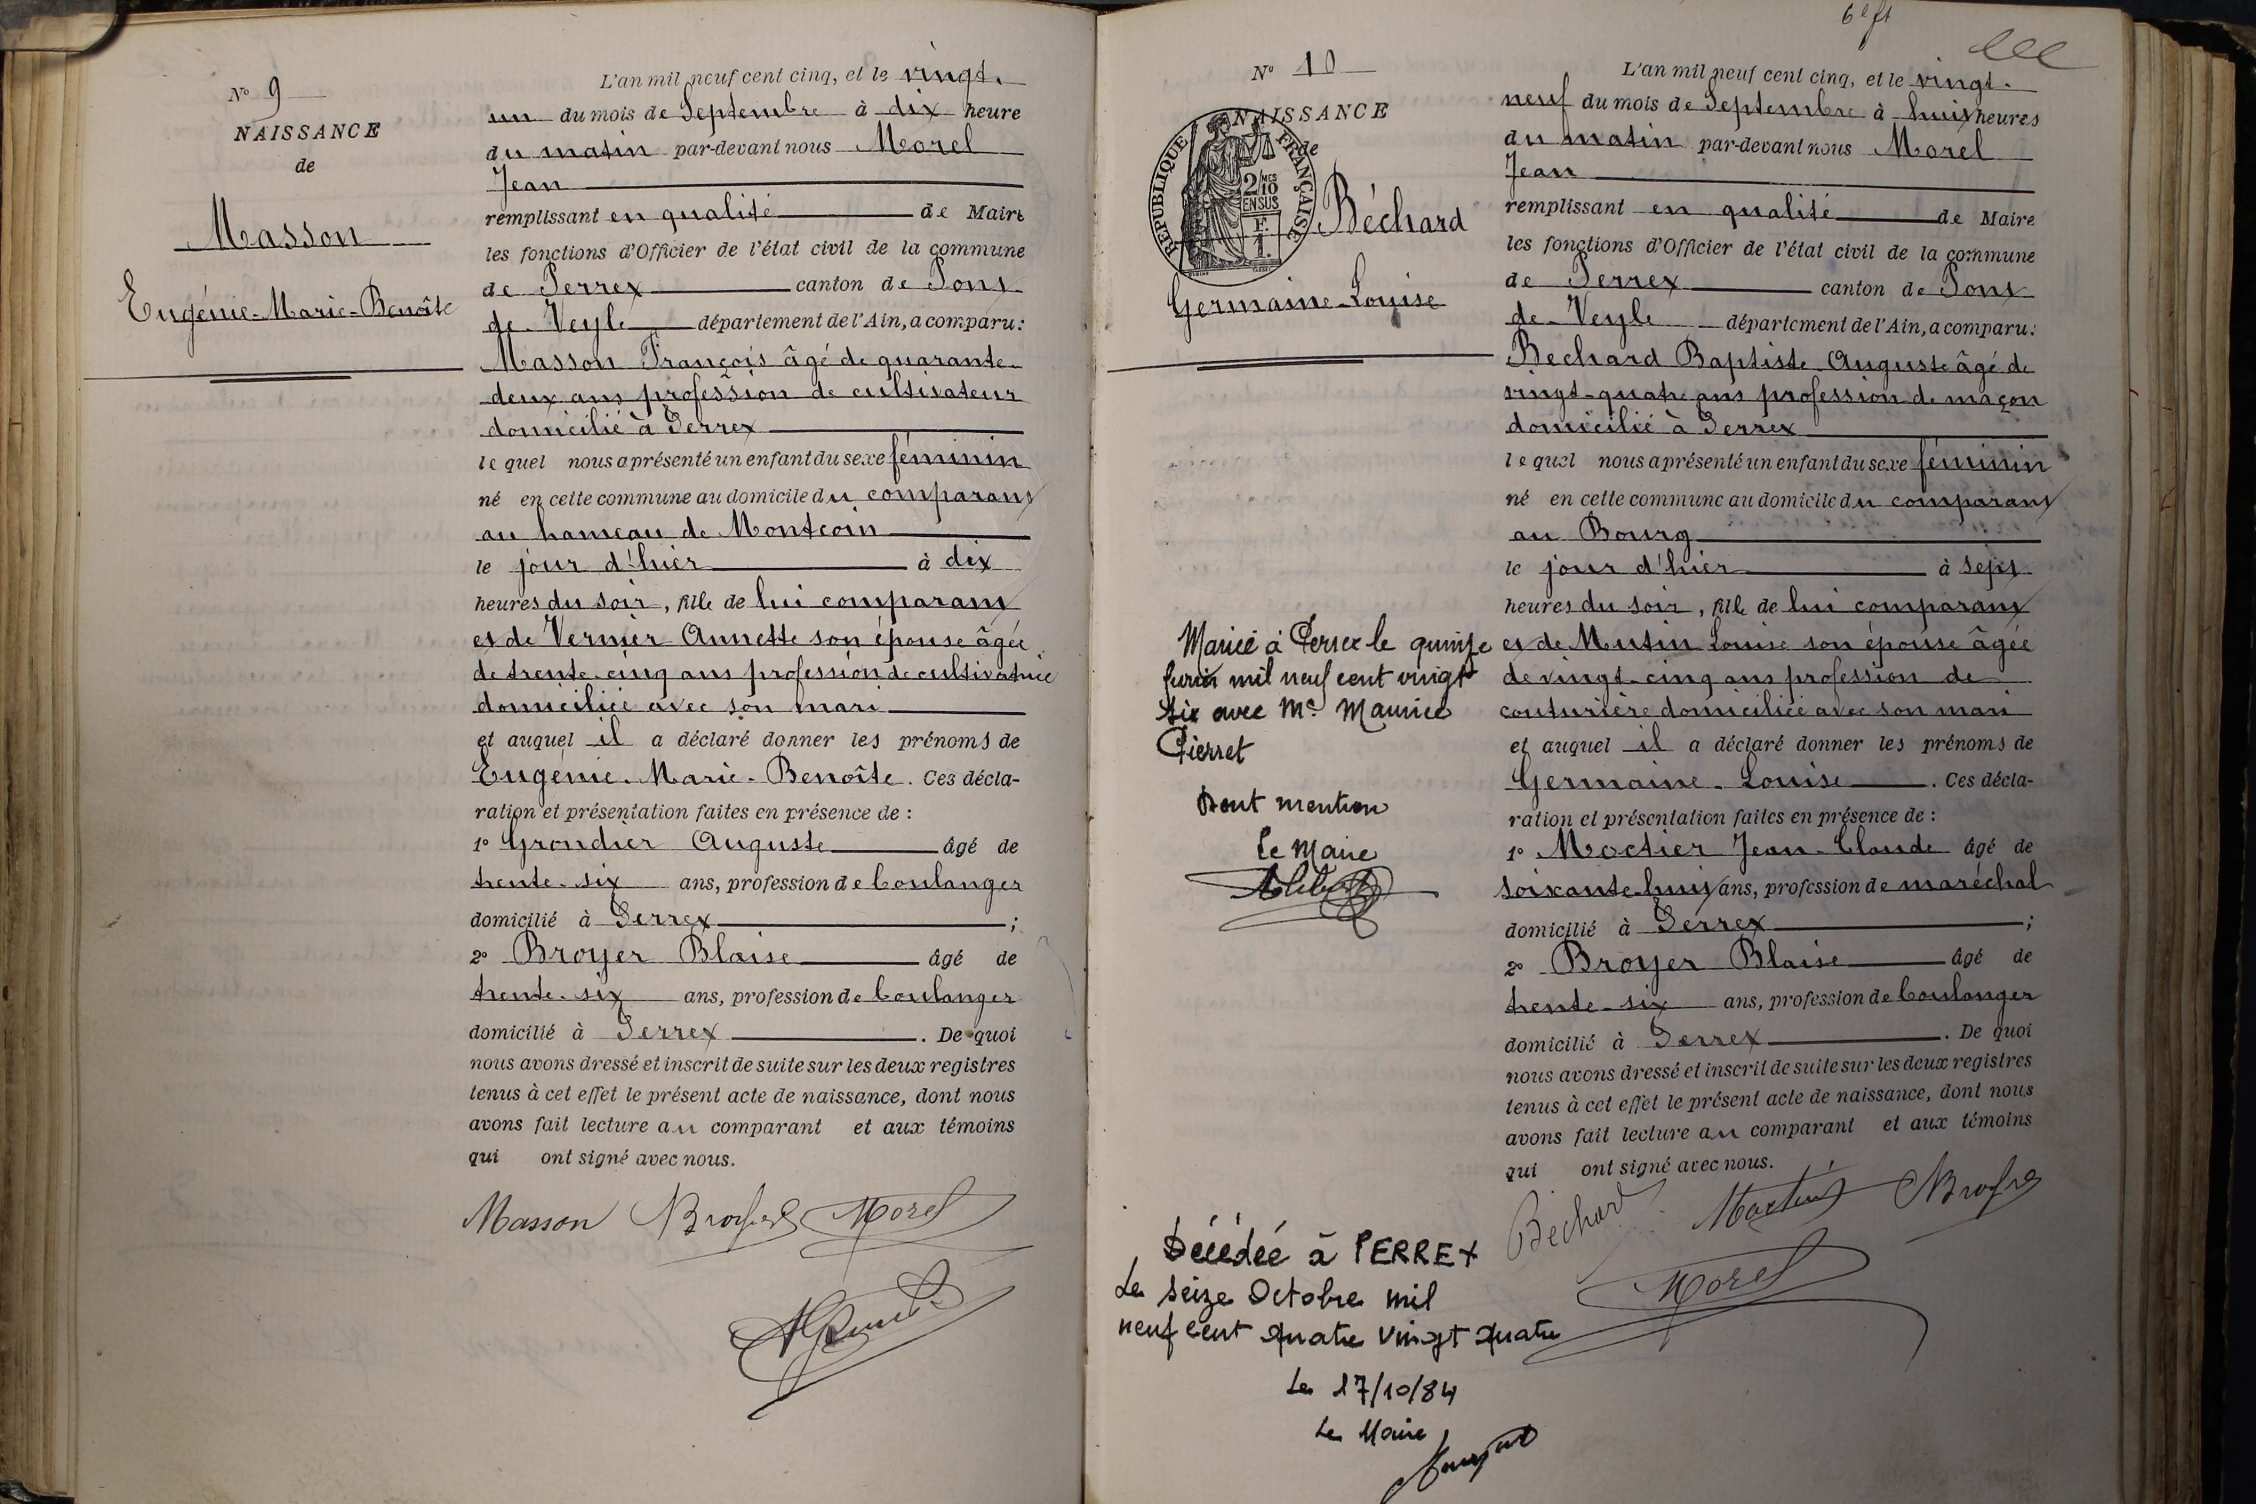 N° 9
NAISSANCE
de
Masson
Eugénie-Marie-Benoîte
L'an mil neuf cent cinq, et le vingt-
un du mois de Septembre à dix heure
du matin par-devant nous Morel
Jean
remplissant en qualité de Maire
les fonctions d'Officier de l'état civil de la commune
de Perrex canton de Pont
de Veyle département de l'Ain, a comparu:
Masson François âgé de quarante-
deux ans profession de cultivateur
domicilié à Perrex
lequel nous a présenté un enfant du sexe féminin
né en cette commune au domicile du comparant
au hameau de Montcoin
le jour d'hier à dix
heures du soir, fille de lui comparant
et de Vernier Annette son épouse âgée
de trente-cinq ans profession de cultivatrice
domiciliée avec son mari
et auquel il a déclaré donner les prénoms de
Eugénie-Marie-Benoîte. Ces décla-
ration et présentation faites en présence de :
1° Grondier Auguste âgé de
trente-six ans, profession de boulanger
domicilié à Perrex ;
2° Broyer Blaise âgé de
trente-six ans, profession de boulanger
domicilié à Perrex . De quoi
nous avons dressé et inscrit de suite sur les deux registres
tenus à cet effet le présent acte de naissance, dont nous
avons fait lecture au comparant et aux témoins
qui ont signé avec nous.
Masson Broyer Morel
N° 10
NAISSANCE
de
REPUBLIQUE FRANÇAISE
2/10 MES
EN SUS
F.
1.
Béchard
Germaine-Louise
Mariée à Perrex le quinze
juin mil neuf cent vingt
six avec Mr Maurice
Pierret
Dont mention
Le Maire
Décédée à PERREX
Le seize Octobre mil
neuf cent quatre vingt quatre
Le 17/10/84
Le Maire
L'an mil neuf cent cinq, et le vingt-
neuf du mois de Septembre à huit heures
du matin par-devant nous Morel
Jean
remplissant en qualité de Maire
les fonctions d'Officier de l'état civil de la commune
de Perrex canton de Pont
de Veyle département de l'Ain, a comparu:
Bechard Baptiste Auguste âgé de
vingt-quatre ans profession de maçon
domicilié à Perrex
lequel nous a présenté un enfant du sexe féminin
né en cette commune au domicile du comparant
au Bourg
le jour d'hier à sept
heures du soir, fille de lui comparant
et de Mutin Louise son épouse âgée
de vingt-cinq ans profession de
couturière domiciliée avec son mari
et auquel il a déclaré donner les prénoms de
Germaine-Louise . Ces décla-
ration et présentation faites en présence de :
1° Moctier Jean-Claude âgé de
soixante-huit ans, profession de maréchal
domicilié à Perrex ;
2° Broyer Blaise âgé de
trente-six ans, profession de boulanger
domicilié à Perrex . De quoi
nous avons dressé et inscrit de suite sur les deux registres
tenus à cet effet le présent acte de naissance, dont nous
avons fait lecture au comparant et aux témoins
qui ont signé avec nous.
Béchard Broyer
Morel